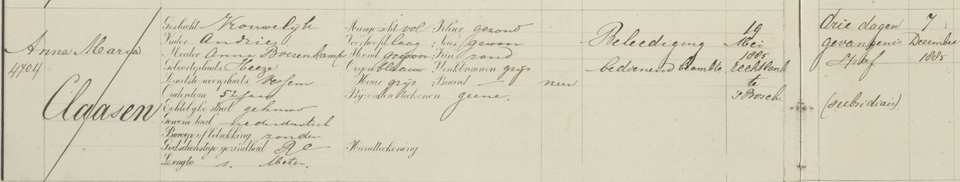 Anna Maria
4704
Claasen
Geslacht Vrouwelijk
Vader Andries
Moeder Anna Boerenkamp
Geboorteplaats Heeze
Laatste woonplaats
Ouderdom 52 jaar
Echtelijke staat gehuwd
Gewone taal nederduitsch
Beroep of betrekking zonder
Godsdienstige gezindheid RC
Lengte 1. Meter.
Aangezicht vol Kleur gezond
Voorhoofd laag Neus gewoon
Mond gewoon Kin rond
Oogen blauw Wenkbrauwen grijs
Haar grijs Baard
Bijzondere teekenen geene.
Handteekening
neen
Beleediging
bedienend ambte
19
Mei
1885
Rechtbank
te
's Bosch
drie dagen
gevangenis
straf
(subsidiair)
7
December
1885